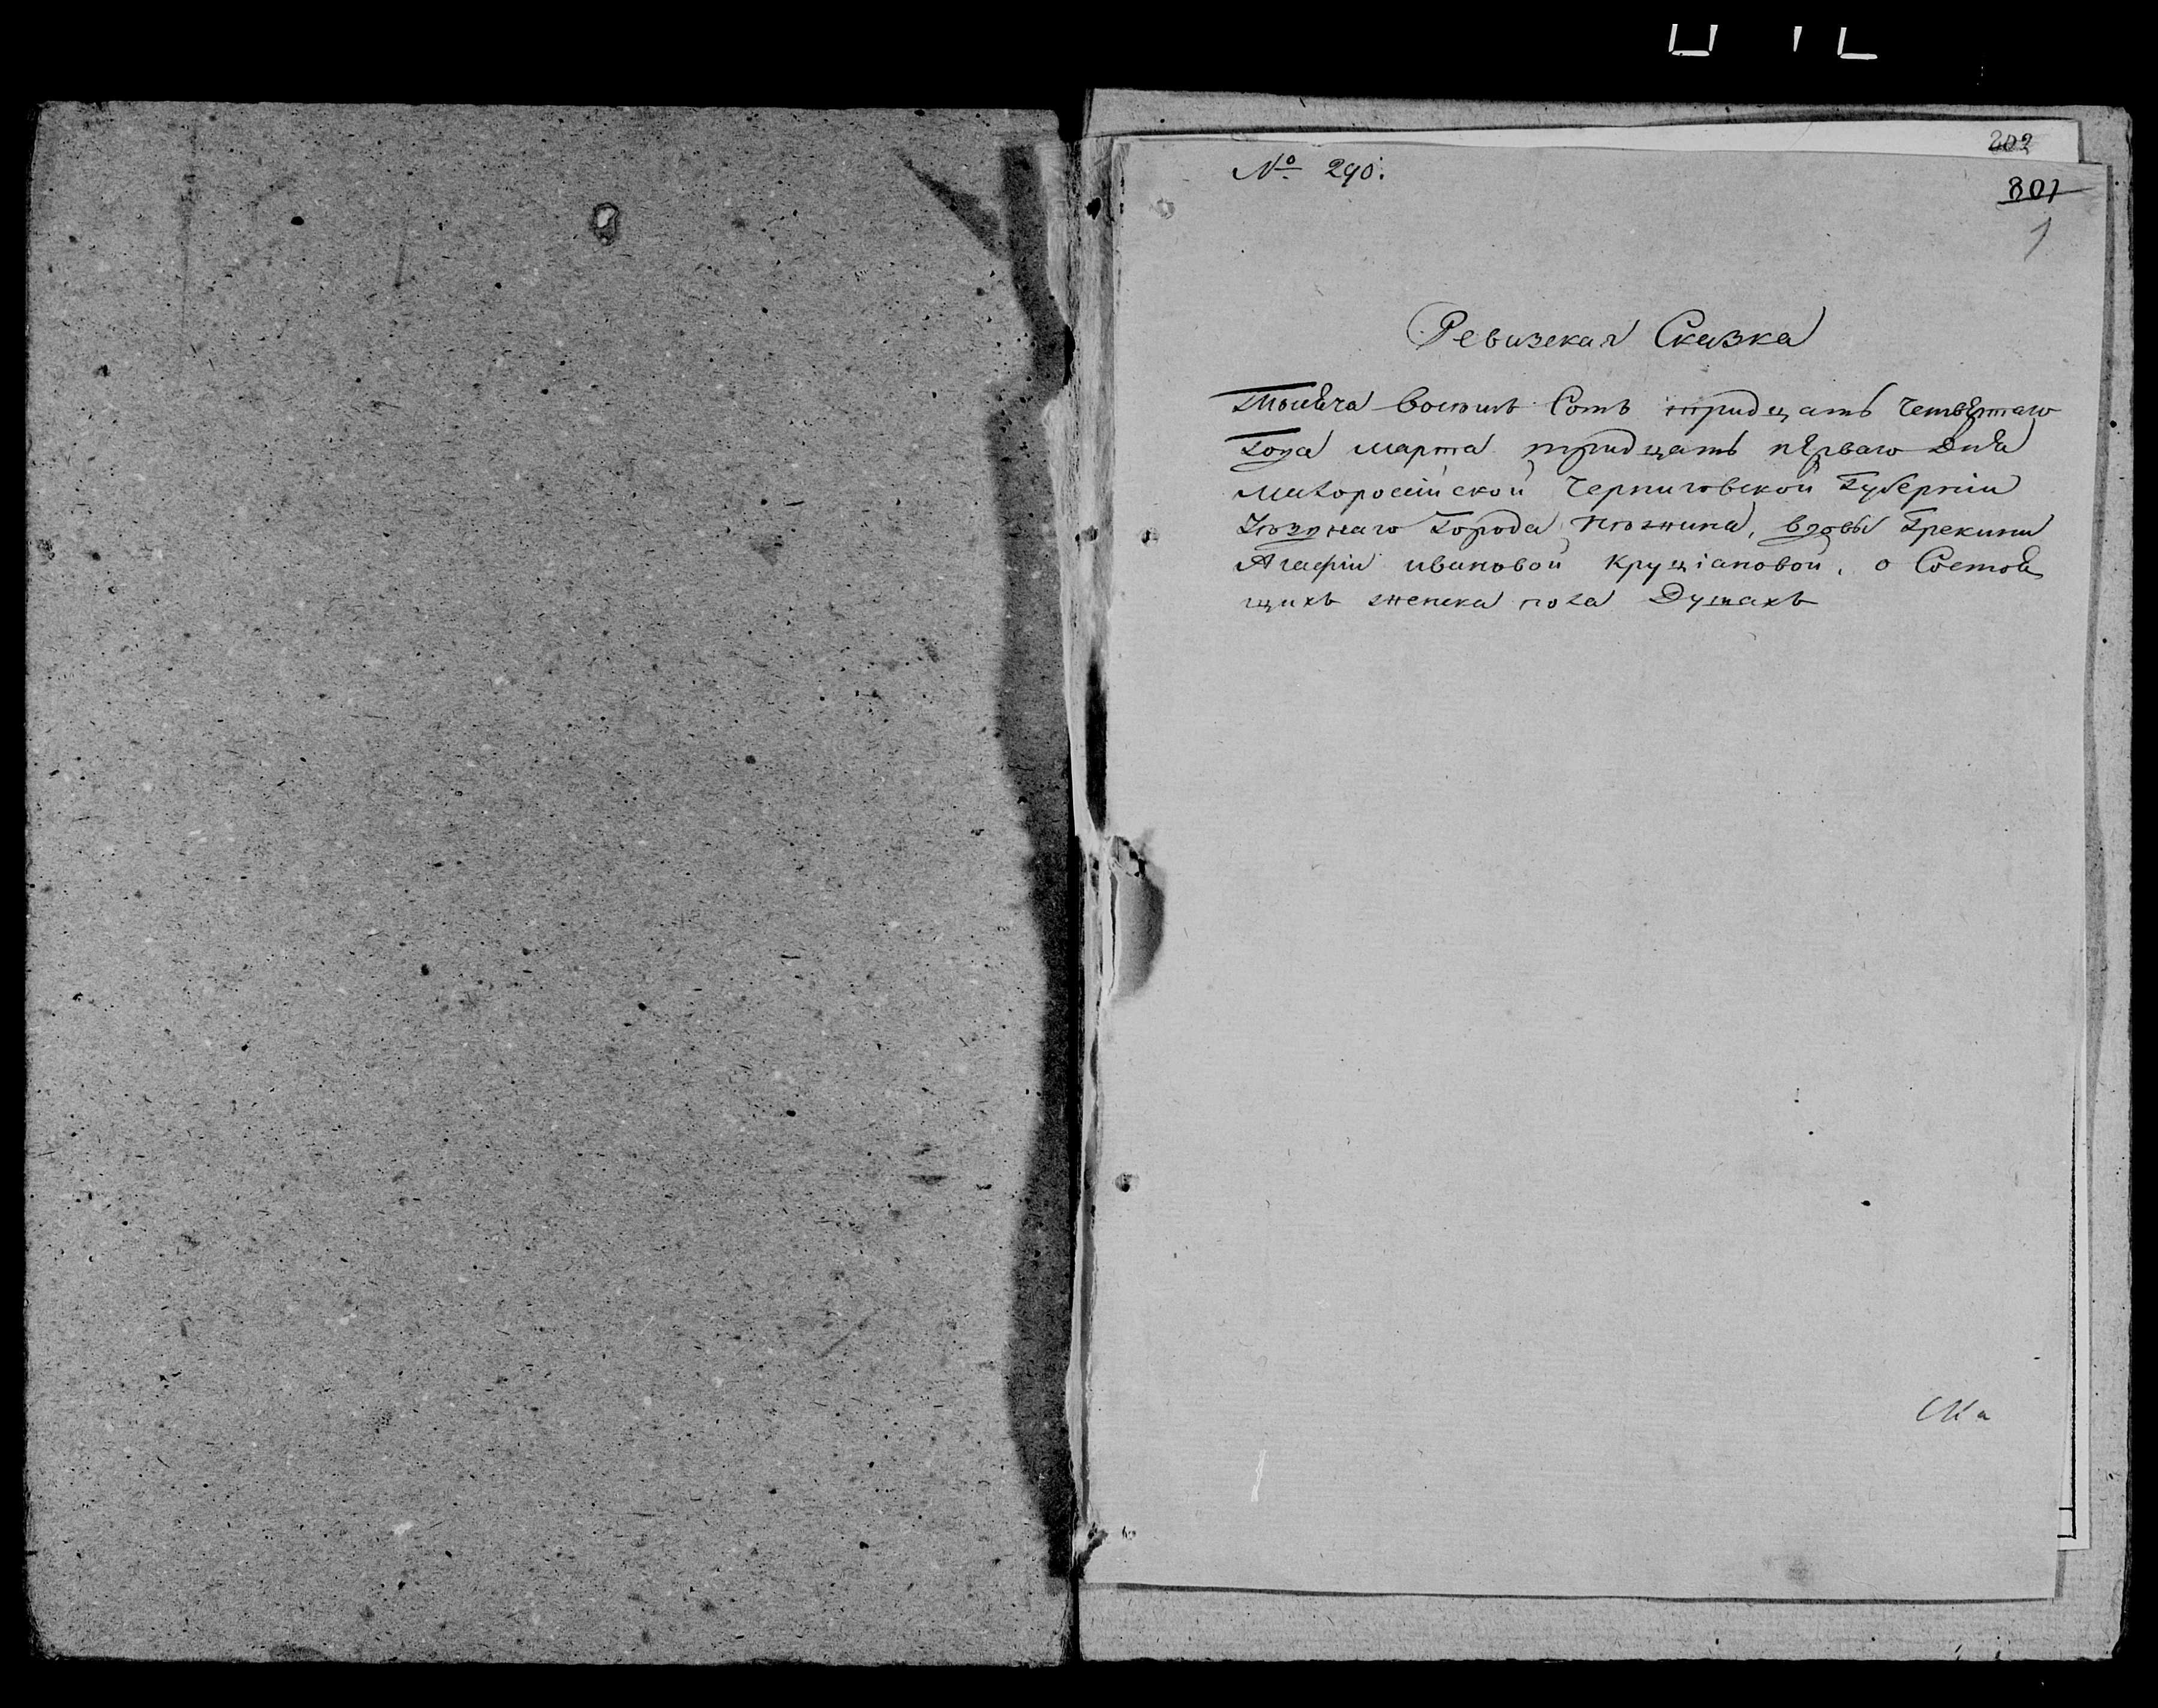 202
№ 290:
801
1
Ревизская Сказка
Тысяча восемь Сотъ тридцать Четвертаго
Года марта тридцать перваго Дня
Малоросийской Черниговской Губерніи
Уезднаго Города Нежина, вдовы Грекини
Агафіи ивановой Круціановой, о Состоя
щихъ женска пола Душахъ